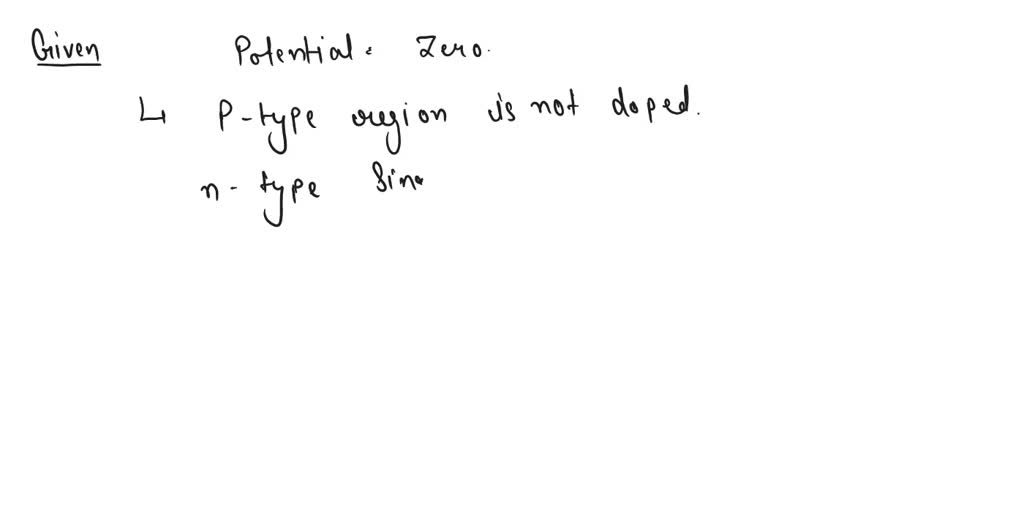 Given Potential = Zero.
↳ P-type region is not doped.
n-type Sinc